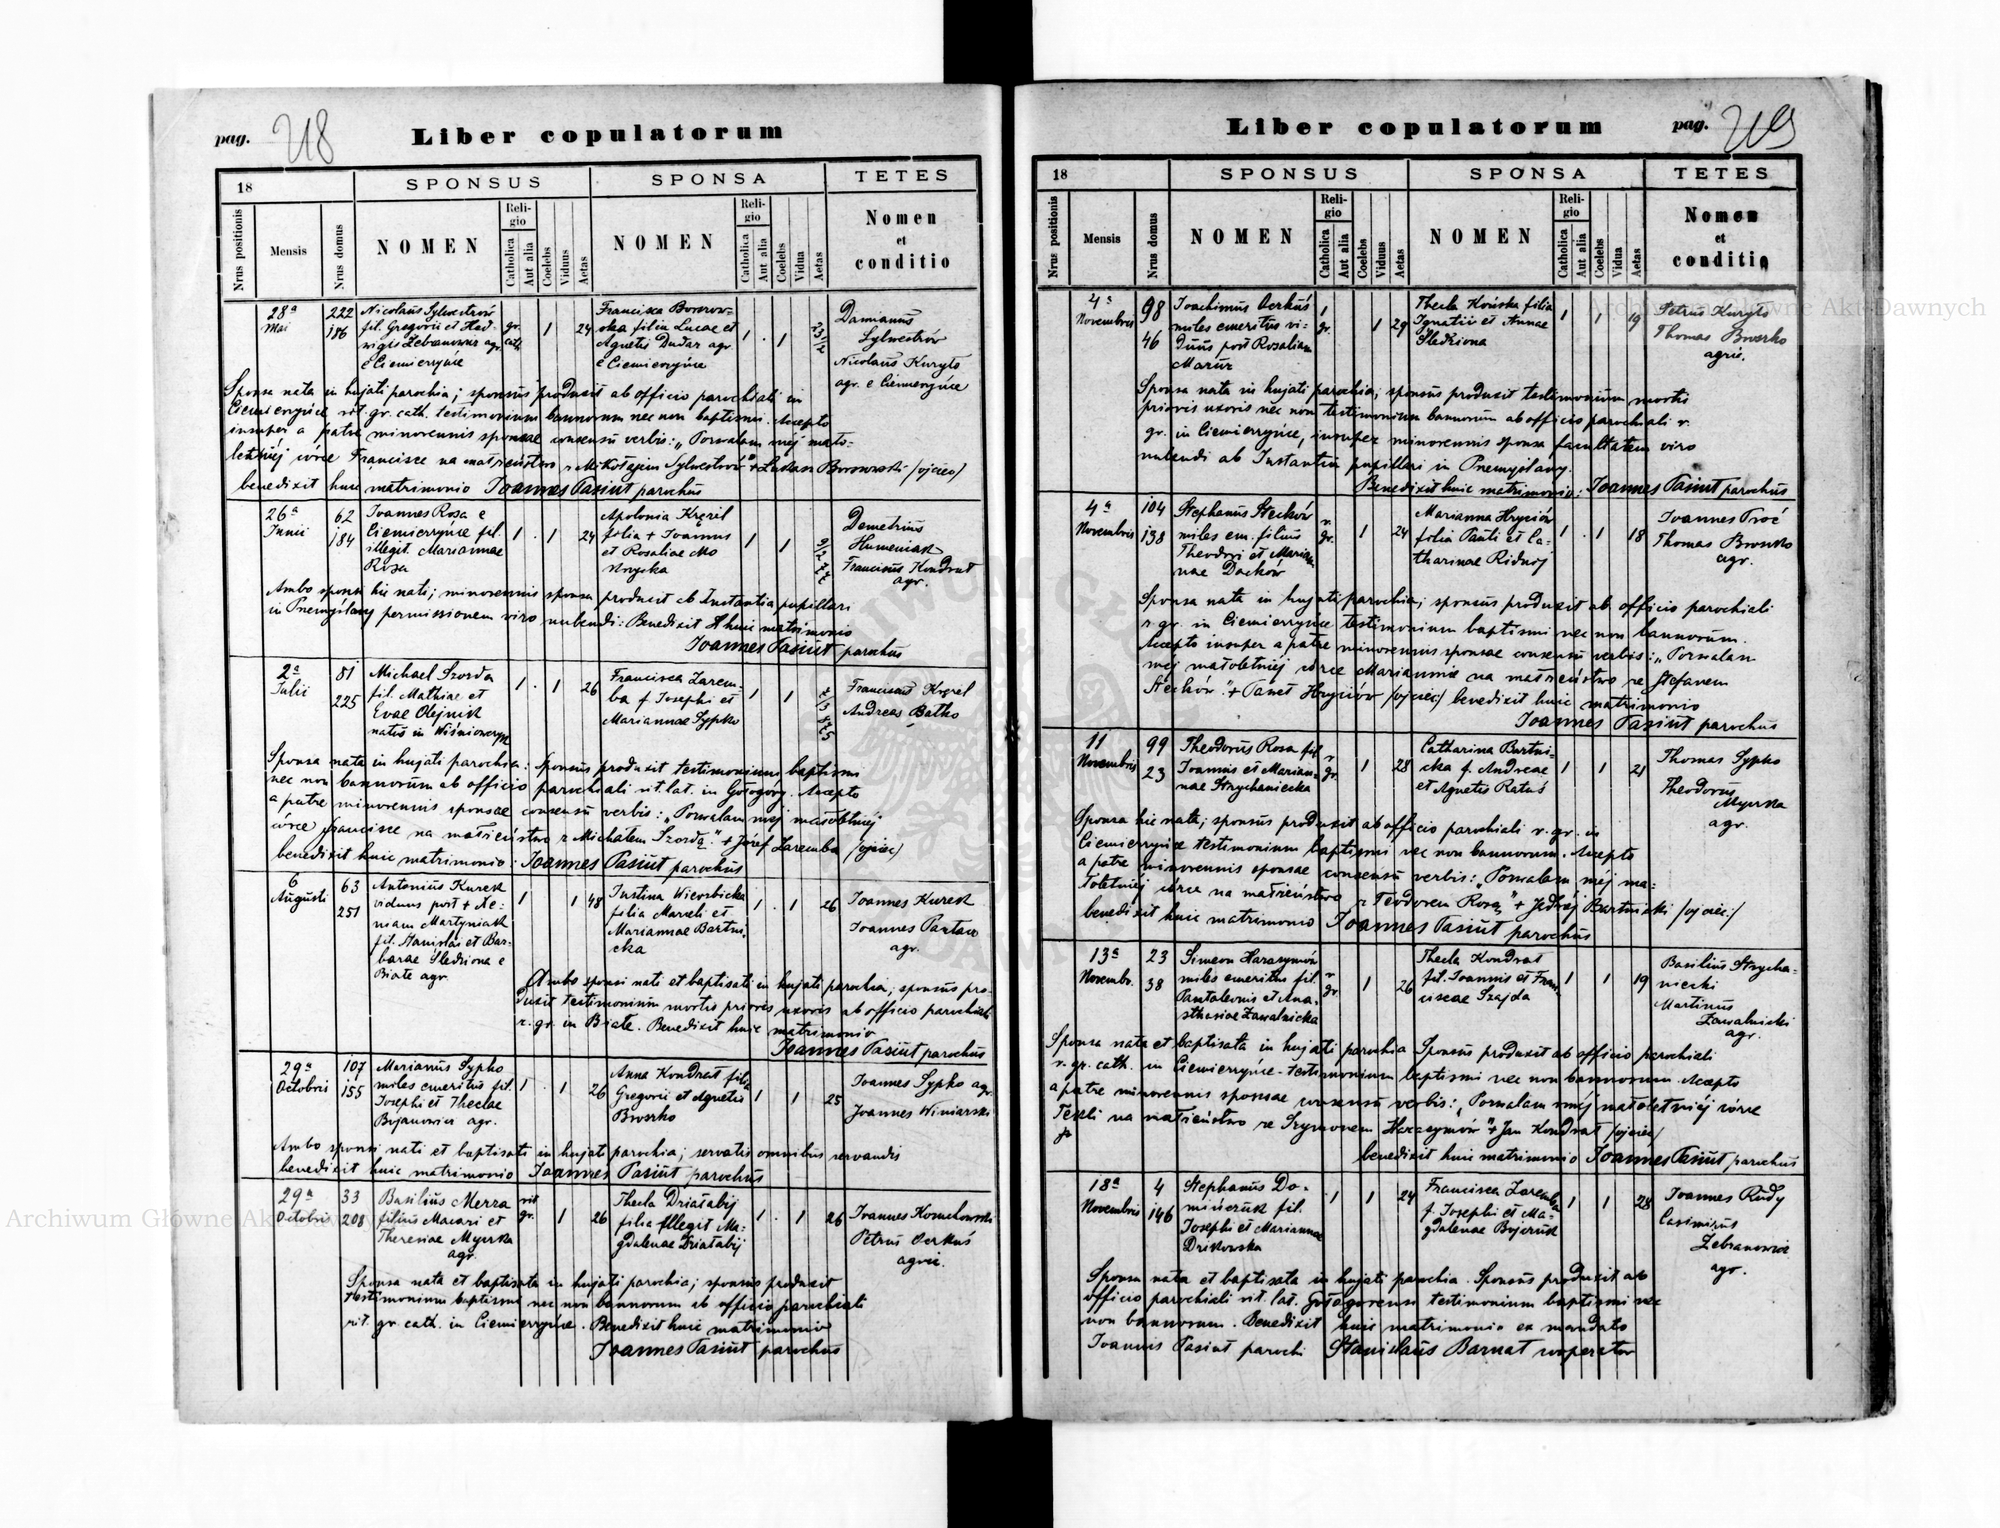 pag. 218
Liber copulatorum
18
SPONSUS
SPONSA
TETES
Nrus positionis
Mensis
Nrus domus
NOMEN
Religio
Catholica
Aut alia
Coelebs
Viduus
Aetas
NOMEN
Religio
Catholica
Aut alia
Coelebs
Vidua
Aetas
Nomen
et
conditio
28a Mai
222
186
Nicolaus Sylwestrów
fil. Gregorii et Hed-
wigis Zebranowicz agr.
e Ciemierzyńce
gr. cath
1
24
Francisca Borow-
ska filia Lucae et
Agnetis Dudar agr.
e Ciemierzyńce
1
1
Damianus
Sylwestrów
Nicolaus Kuryło
agr. e Ciemierzyńce
Sponsa nata in hujati parochia; sponsus produxit ab officio parochiali in
Ciemierzyńce rit. gr. cath. testimonium bannorum nec non baptismi. Accepto
insuper a patre minorennis sponsae consensu verbis: „Pozwalam mej mało-
letniej córce Francisce na małżeństwo z Mikołajem Sylwestrów" + Łukasz Borowski /ojciec/
benedixit huic matrimonio Joannes Pasiut parochus
26a Junii
62
184
Joannes Rosa e
Ciemierzyńce fil.
illegit. Mariannae
Rosa
1
1
24
Apolonia Kręzil
filia + Joannis
et Rosaliae Mo
1
1
Demetrius
Humeniak
Franciscus Kondrat
agr.
Ambo sponsi hic nati; minorennis sponsa produxit ab Instantia pupillari
in Przemyślany permissionem viro nubendi: Benedixit huic matrimonio
Joannes Pasiut parochus
2a Julii
81
225
Michael Szozda
fil. Mathiae et
Evae Olejnik
natus in
1
1
26
Francisca Zarem-
ba f. Josephi et
Mariannae Sypko
1
1
Franciscus Kręzel
Andreas Batko
Sponsa nata in hujati parochia: Sponsus produxit testimonium baptismi
nec non bannorum ab officio parochiali rit. lat. in Gołogóry. Accepto
a patre minorennis sponsae consensu verbis: „Pozwalam mej małoletniej
córce Francisce na małżeństwo z Michałem Szozdą." + Józef Zaremba /ojciec/
benedixit huic matrimonio: Joannes Pasiut parochus
6 Augusti
63
251
Antonius Kurek
viduus post + Xe-
niam Martyniak
fil. Stanislai et Bar-
barae Śledziona e
Białe agr.
1
1
48
Justina Wierzbicka
filia Marceli et
Mariannae Bartni-
cka
1
1
26
Joannes Kurek
Joannes
agr.
Ambo sponsi nati et baptisati in hujati parochia, sponsus pro-
duxit testimonium mortis prioris uxoris ab officio parochiali
r. gr. in Białe. Benedixit huic matrimonio
Joannes Pasiut parochus
29a Octobris
107
155
Marianus Sypko
miles emeritus fil.
Josephi et Theclae
Bojanowicz agr.
1
1
26
Anna Kondrat filia
Gregorii et Agnetis
Brosko
1
1
25
Joannes Sypko agr.
Joannes Winiarski
Ambo sponsi nati et baptisati in hujati parochia; servatis omnibus servandis
benedixit huic matrimonio Joannes Pasiut parochus
29a Octobris
33
208
Basilius Mezza
filius Macarii et
Theresiae Myszka
agr.
rit gr.
1
26
Thecla Działabij
filia illegit Ma-
gdalenae Działabij
1
1
26
Joannes
Petrus Oerkuś
agric.
Sponsa nata et baptisata in hujati parochia; sponsus produxit
testimonium baptismi nec non bannorum ab officio parochiali
rit. gr. cath. in Ciemierzyńce. Benedixit huic matrimonio
Joannes Pasiut parochus
Liber copulatorum
pag. 219
18
SPONSUS
SPONSA
TETES
Nrus positionis
Mensis
Nrus domus
NOMEN
Religio
Catholica
Aut alia
Coelebs
Viduus
Aetas
NOMEN
Religio
Catholica
Aut alia
Coelebs
Vidua
Aetas
Nomen
et
conditio
4a Novembris
98
46
Joachimus Oerkuś
miles emeritus vi-
duus post Rosaliam
Mazur
1
gr.
1
29
Thecla Końska filia
Ignatii et Annae
Śledziona
1
1
19
Petrus Kuryło
Thomas Brosko
agric.
Sponsa nata in hujati parochia; sponsus produxit testimonium mortis
prioris uxoris nec non testimonium bannorum ab officio parochiali r.
gr. in Ciemierzyńce, insuper minorennis sponsa facultatem viro
nubendi ab Instantia pupillari in Przemyślany.
Benedixit huic matrimonio: Joannes Pasiut parochus
4a Novembris
104
138
Stephanus Stecków
miles em. filius
Theodori et Marian-
nae Dacków
r. gr.
1
24
Marianna Hryciów
filia Pauli et Ca-
tharinae Ridnoj
1
1
18
Joannes Proć
Thomas Brosko
agr.
Sponsa nata in hujati parochia; sponsus produxit ab officio parochiali
r. gr. in Ciemierzyńce testimonium baptismi nec non bannorum.
Accepto insuper a patre minorennis sponsae consensu verbis: „Pozwalam
mej małoletniej córce Mariannie na małżeństwo ze Stefanem
Steckiów." + Paweł Hryciów /ojciec/ benedixit huic matrimonio
Joannes Pasiut parochus
11 Novembris
99
23
Theodorus Rosa fil
Joannis et Marian-
nae Strychaniecka
r gr.
1
28
Catharina Bartni-
cka f. Andreae
et Agnetis Rataś
1
1
21
Thomas Sypko
Theodorus
Myszka
agr.
Sponsa hic nata; sponsus produxit ab officio parochiali r. gr. in
Ciemierzyńce testimonium baptismi nec non bannorum. Accepto
a patre minorennis sponsae consensu verbis: „Pozwalam mej ma-
łoletniej córce na małżeństwo z Teodorem Rosą" + Jędrzej Bartnicki /ojciec/
benedixit huic matrimonio Joannes Pasiut parochus
13a Novembr.
23
38
Simeon Harasymów
miles emeritus fil.
Pantaleonis et Ana-
sthasiae Zawalnicka
r gr.
1
26
Thecla Kondrat
fil. Joannis et Fran-
ciscae Szajda
1
1
19
Basilius Strycha-
niecki
Martinus
Zawalnicki
agr.
Sponsa nata et baptisata in hujati parochia Sponsus produxit ab officio parochiali
r. gr. cath. in Ciemierzyńce - testimonium baptismi nec non bannorum. Accepto
a patre minorennis sponsae consensu verbis: „Pozwalam mej małoletniej córce
Tekli na małżeństwo ze Szymonem Harasymów" + Jan Kondrat /ojciec/
benedixit huic matrimonio Joannes Pasiut parochus
18a Novembris
4
146
Stephanus Do-
mińczuk fil.
Josephi et Mariannae
Dzikowska
1
1
24
Francisca Zaremba
f. Josephi et Ma-
gdalenae Bojczuk
1
1
28
Joannes Rudy
Casimirus
Zebranowicz
agr.
Sponsa nata et baptisata in hujati parochia. Sponsus produxit ab
officio parochiali rit. lat. Gołogorensi testimonium baptismi nec
non bannorum. Benedixit huic matrimonio ex mandato
Joannis Pasiut parochi Stanislaus Barnat cooperator
Archiwum Główne Akt Dawnych
Archiwum Główne Akt Dawnych